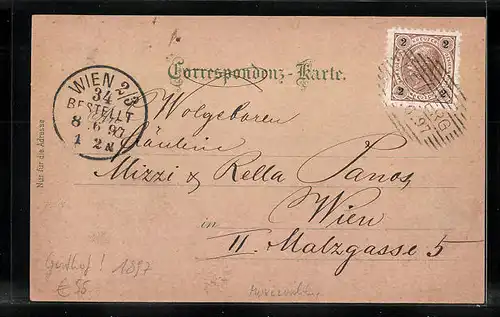 Correspondenz-Karte.
2 2
2 2
WIEN 2/3
34
BESTELLT
8 6 97
1 2 N
RG
97
Wolgeboren
Fräulein
Mizzi & Rella Panos,
in Wien
II. Malzgasse 5
Nur für die Adresse
Gasthof! 1897